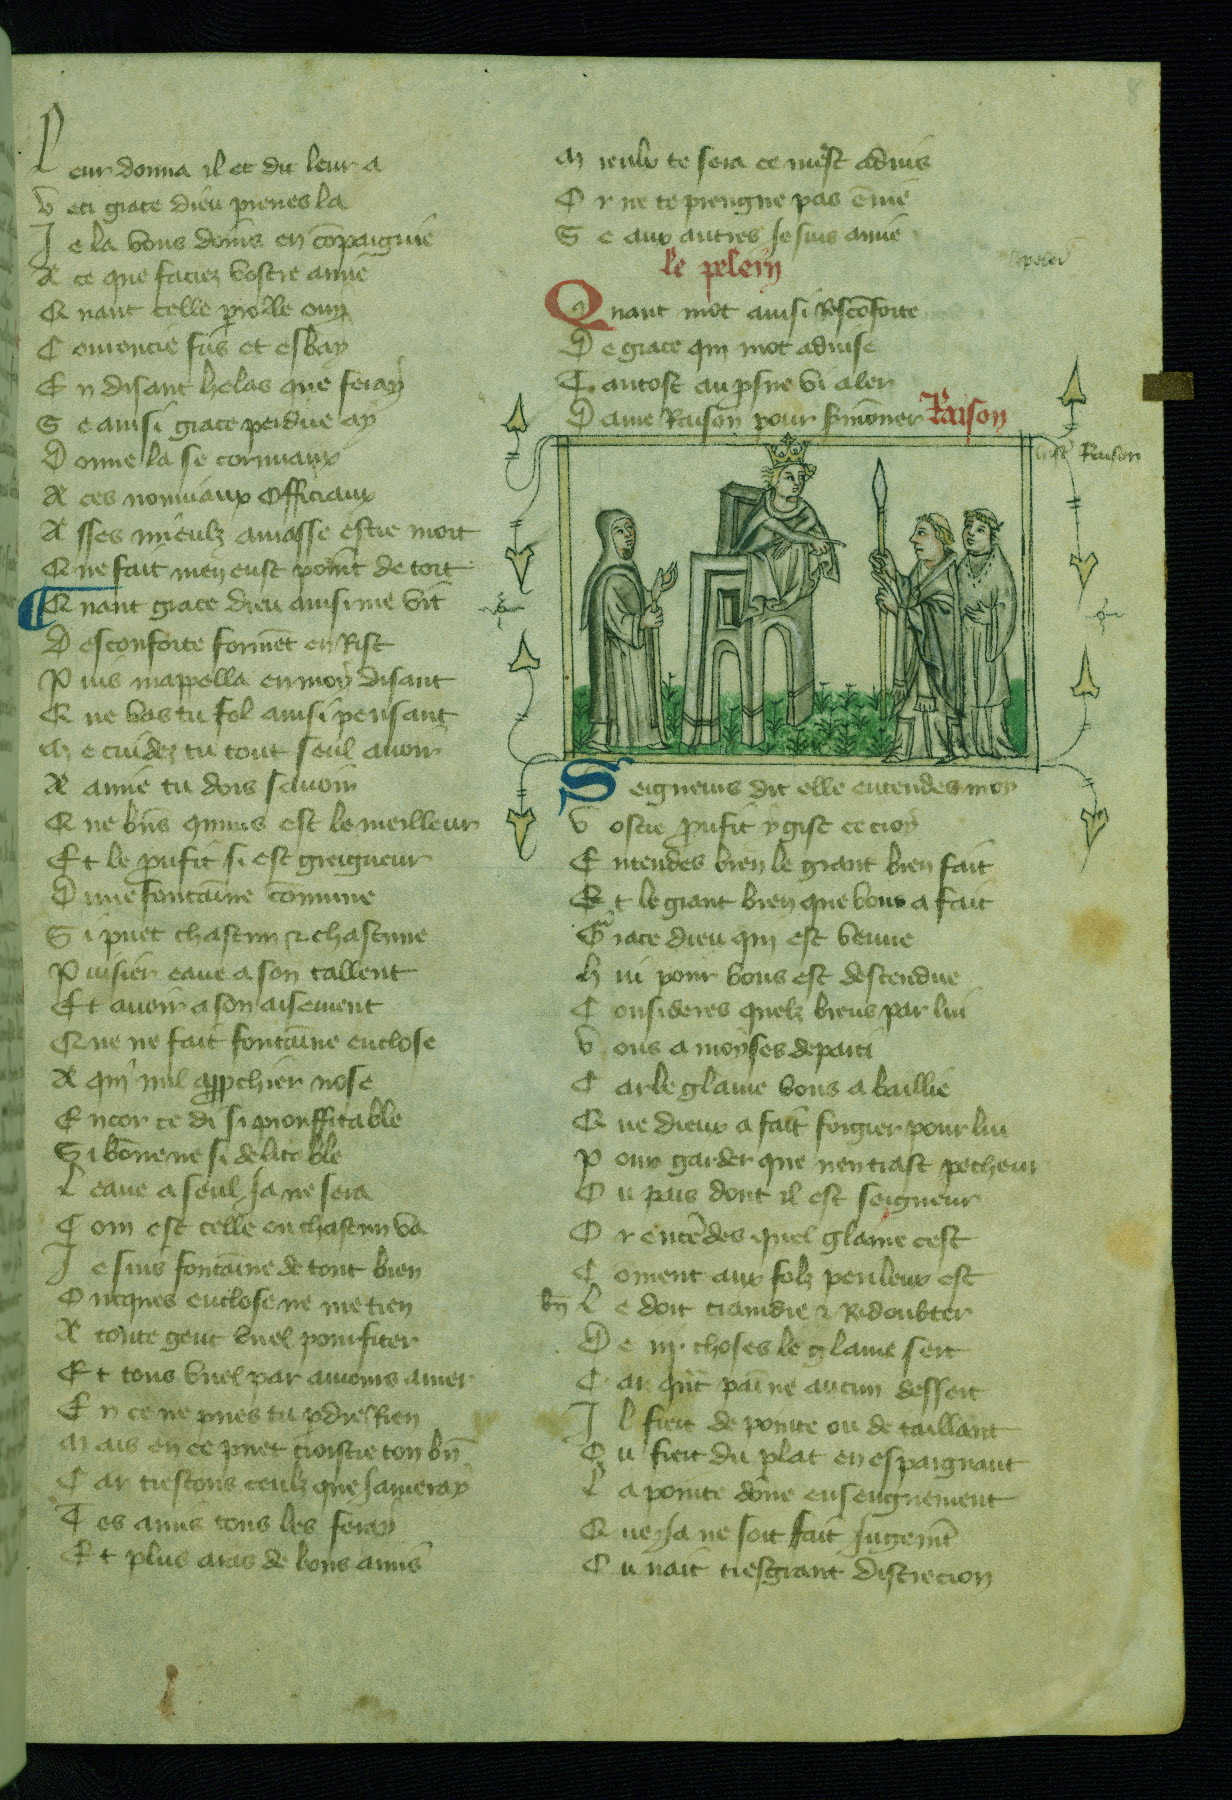 Leur donna il et dit leur a
Veci grace dieu prenes la
Je la vous doins en cōpaignie
A ce que faciez vostre amie
Quant celle parole ouy
Couroucie fus et esbay
En disant helas que feray
Se ainsi grace perdue ay
Donne la se cornuaux
A ces nouuiaux officiaux
Asses mieulx amasse estre mort
Que fait men eust point de tort
Quant grace dieu ainsi me vit
Desconforte formēt en Rist
Puis mappella en moy disant
Que vas tu fol ainsi pensant
Me cuidez tu tout seul auoir
A amie tu dois sauoir
Que biēs cōmuns est le meilleur
Et le proufit si est greigneur
Dune fontaine cōmune
Si puet chascun et chascune
Puisier eaue a son tallent
Et auoir a son aisement
Que ne fait fontaine enclose
A qui nul approchier nose
Encor te di si prouffitable
Si bōne ne si delitable
Leaue a seul ja ne sera
Com est celle ou chascun va
Je suis fontaine de tout bien
Oncques enclose ne me tien
A toute gent vuel proufiter
Et tous vuel par amours amer
En ce ne pues tu pdre Rien
Mais en ce puet croistre ton biē
Car trestous ceulx que jameray
Tes amis tous les feray
Et plus aras de bons amis
Mieulx te sera ce mest aduis
Or ne te preugne pas ēnui
Se aux autres je suis amie
le pelerin
le peleri
Quant mot ainsi Rescōforte
De grace qui mot aduise
Tantost au psne vi aler
Dame Raison pour sermōner
Raison
Raison
Seigneurs dit elle entendes moy
Vostre proufit y gist ce croy
Entendes bien le grant bien fait
Et le grant bien que vous a fait
Grace dieu qui est venue
Hui pour vous est descendue
Consideres quelz biens par lui
Vous a moyses departi
Car le glaiue vous a baillie
Que dieux a fait forgier pour lui
Pour garder que nentrast pecheur
Ou pais dont il est seigneur
Or entēdes quel glaiue cest
Coment aux folz perileux est
bn̄
Le doit craindre et Redoubter
De iij choses le glaiue sert
Car quāt paine aucun dessert
Il fiert de pointe ou de taillant
Ou fiert du plat en espargnant
La pointe dōne enseignement
Que ja ne soit fait jugemēt
Ou nait tresgrant discrecion